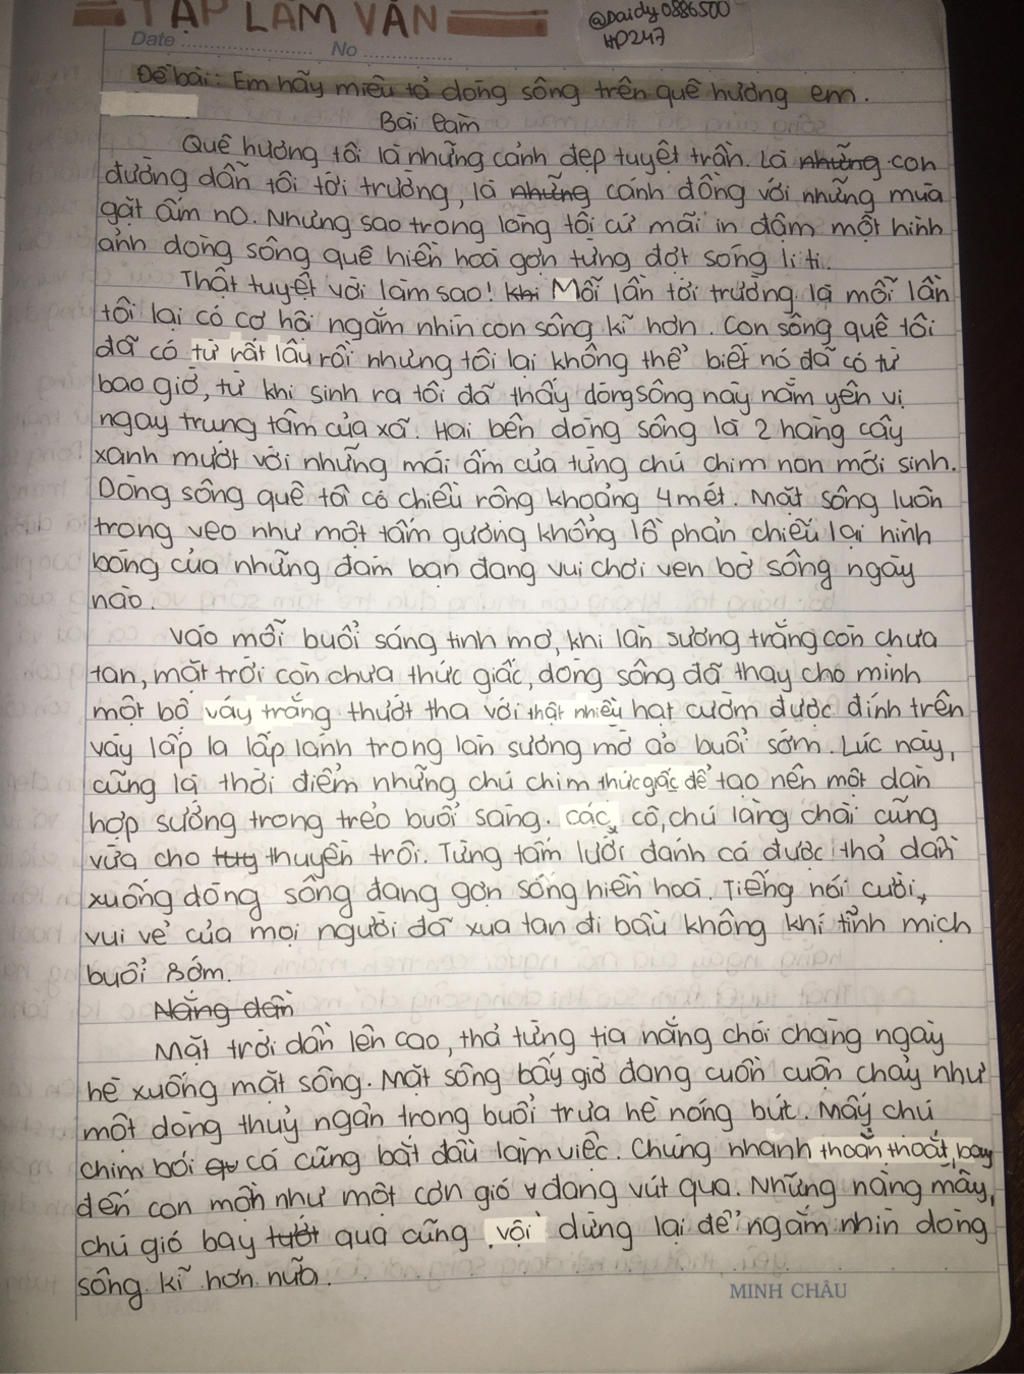 TẬP LÀM VĂN
@Daidy0886500
HD247
Date No
Đề bài: Em hãy miêu tả dòng sông trên quê hương em.
Bài làm
Quê hương tôi là những cảnh đẹp tuyệt trần. Là những con
đường dẫn tôi tới trường, là những cánh đồng với những mùa
gặt ấm no. Nhưng sao trong lòng tôi cứ mãi in đậm một hình
ảnh dòng sông quê hiền hoà gợn từng đợt sóng li ti.
Thật tuyệt vời làm sao! khi Mỗi lần tới trường là mỗi lần
tôi lại có cơ hội ngắm nhìn con sông kĩ hơn. Con sông quê tôi
đã có từ rất lâu rồi nhưng tôi lại không thể biết nó đã có từ
bao giờ, từ khi sinh ra tôi đã thấy dòng sông này nằm yên vị
ngay trung tâm của xã. Hai bên dòng sông là 2 hàng cây
xanh mướt với những mái ấm của từng chú chim non mới sinh.
Dòng sông quê tôi có chiều rộng khoảng 4 mét. Mặt sông luôn
trong veo như một tấm gương khổng lồ phản chiếu lại hình
bóng của những đám bạn đang vui chơi ven bờ sông ngày
nào.
Vào mỗi buổi sáng tinh mơ, khi làn sương trắng còn chưa
tan, mặt trời còn chưa thức giấc, dòng sông đã thay cho mình
một bộ váy trắng thướt tha với thật nhiều hạt cườm được đính trên
váy lấp la lấp lánh trong làn sương mờ ảo buổi sớm. Lúc này,
cũng là thời điểm những chú chim thức giấc để tạo nên một dàn
hợp sướng trong trẻo buổi sáng. các cô, chú làng chài cũng
vừa cho tuy thuyền trôi. Từng tấm lưới đánh cá được thả dần
xuống dòng sông đang gợn sóng hiền hoà. Tiếng nói cười,
vui vẻ của mọi người đã xua tan đi bầu không khí tĩnh mịch
buổi sớm.
Nắng dần
Mặt trời dần lên cao, thả từng tia nắng chói chang ngày
hè xuống mặt sông. Mặt sông bấy giờ đang cuồn cuộn chảy như
một dòng thuỷ ngân trong buổi trưa hè nóng bức. Mấy chú
chim bói cá cũng bắt đầu làm việc. Chúng nhanh thoăn thoắt, bay
đến con mồi như một cơn gió đang vút qua. Những nàng mây,
chú gió bay lướt qua cũng vội dừng lại để ngắm nhìn dòng
sông kĩ hơn nữa.
MINH CHÂU